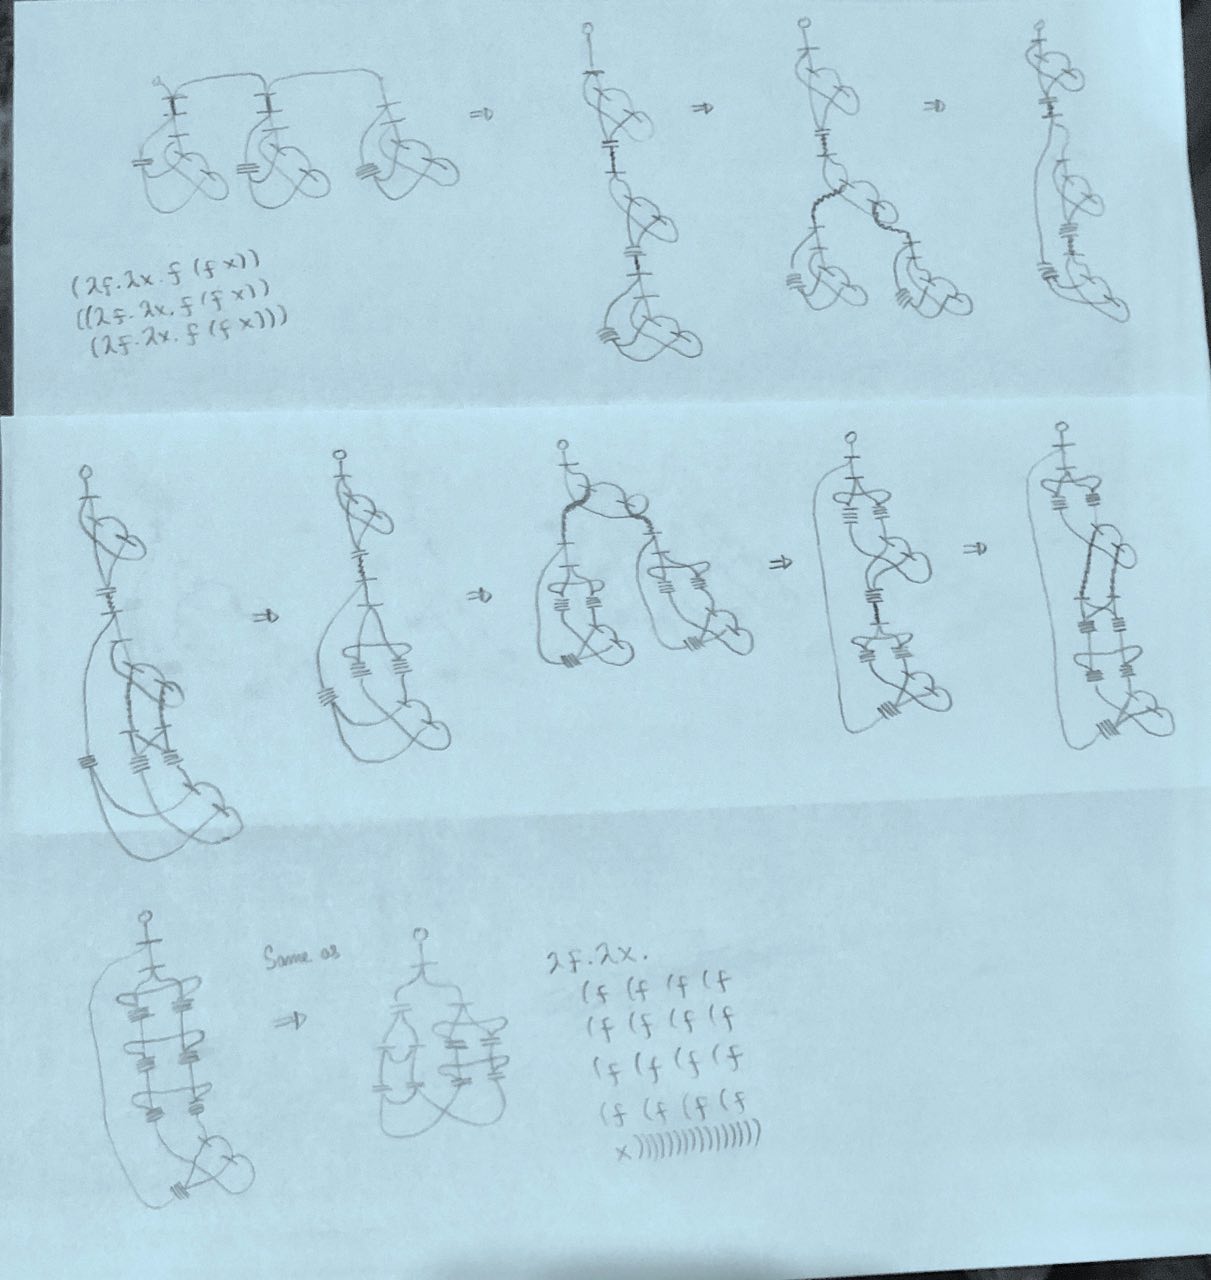 (λf.λx. f (f x))
((λf.λx. f (f x))
(λf.λx. f (f x)))
Same as
λf.λx.
(f (f (f (f
(f (f (f (f
(f (f (f (f
(f (f (f (f
x))))))))))))))))